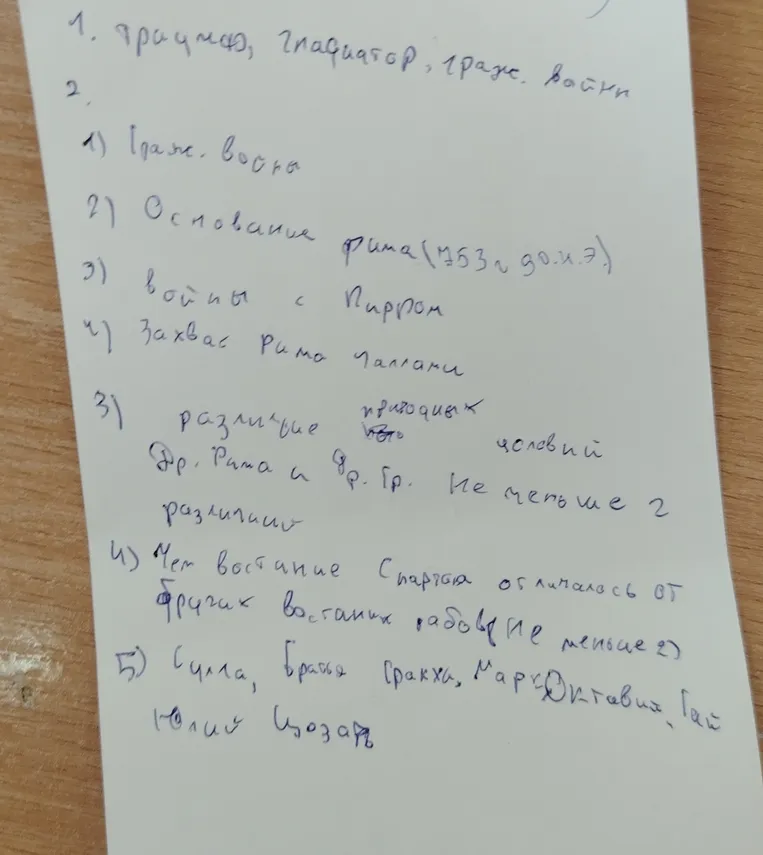 1. триумф, гладиатор, граж. войны
2.
1) Граж. войны
2) Основание рима (753 г до.н.э.)
3) войны с Пирром
4) Захвас Рима галлами
3) различие природных условий
Др. Рима и Др. Гр. Не меньше 2
различий
4) Чем востание Спартака отличалось от
других востаних рабов (не меньше 2)
5) Сулла, братья Гракхи, Марк Октавий, Гай
Юлий Цезарь